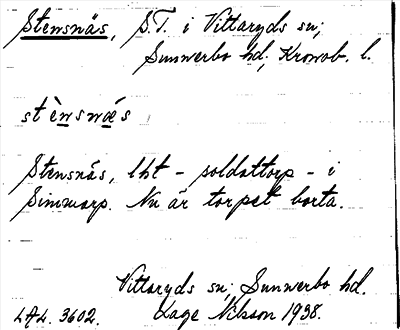 Stensnäs, S.T. i Vittaryds sn;
Sunnerbo hd; Kronob. l.
stè̱nsnǽs
Stensnäs, lht – soldattorp – i
Simnarp. Nu är torpet borta.
Vittaryds sn; Sunnerbo hd.
LAL. 3602. Lage Nilsson 1938.